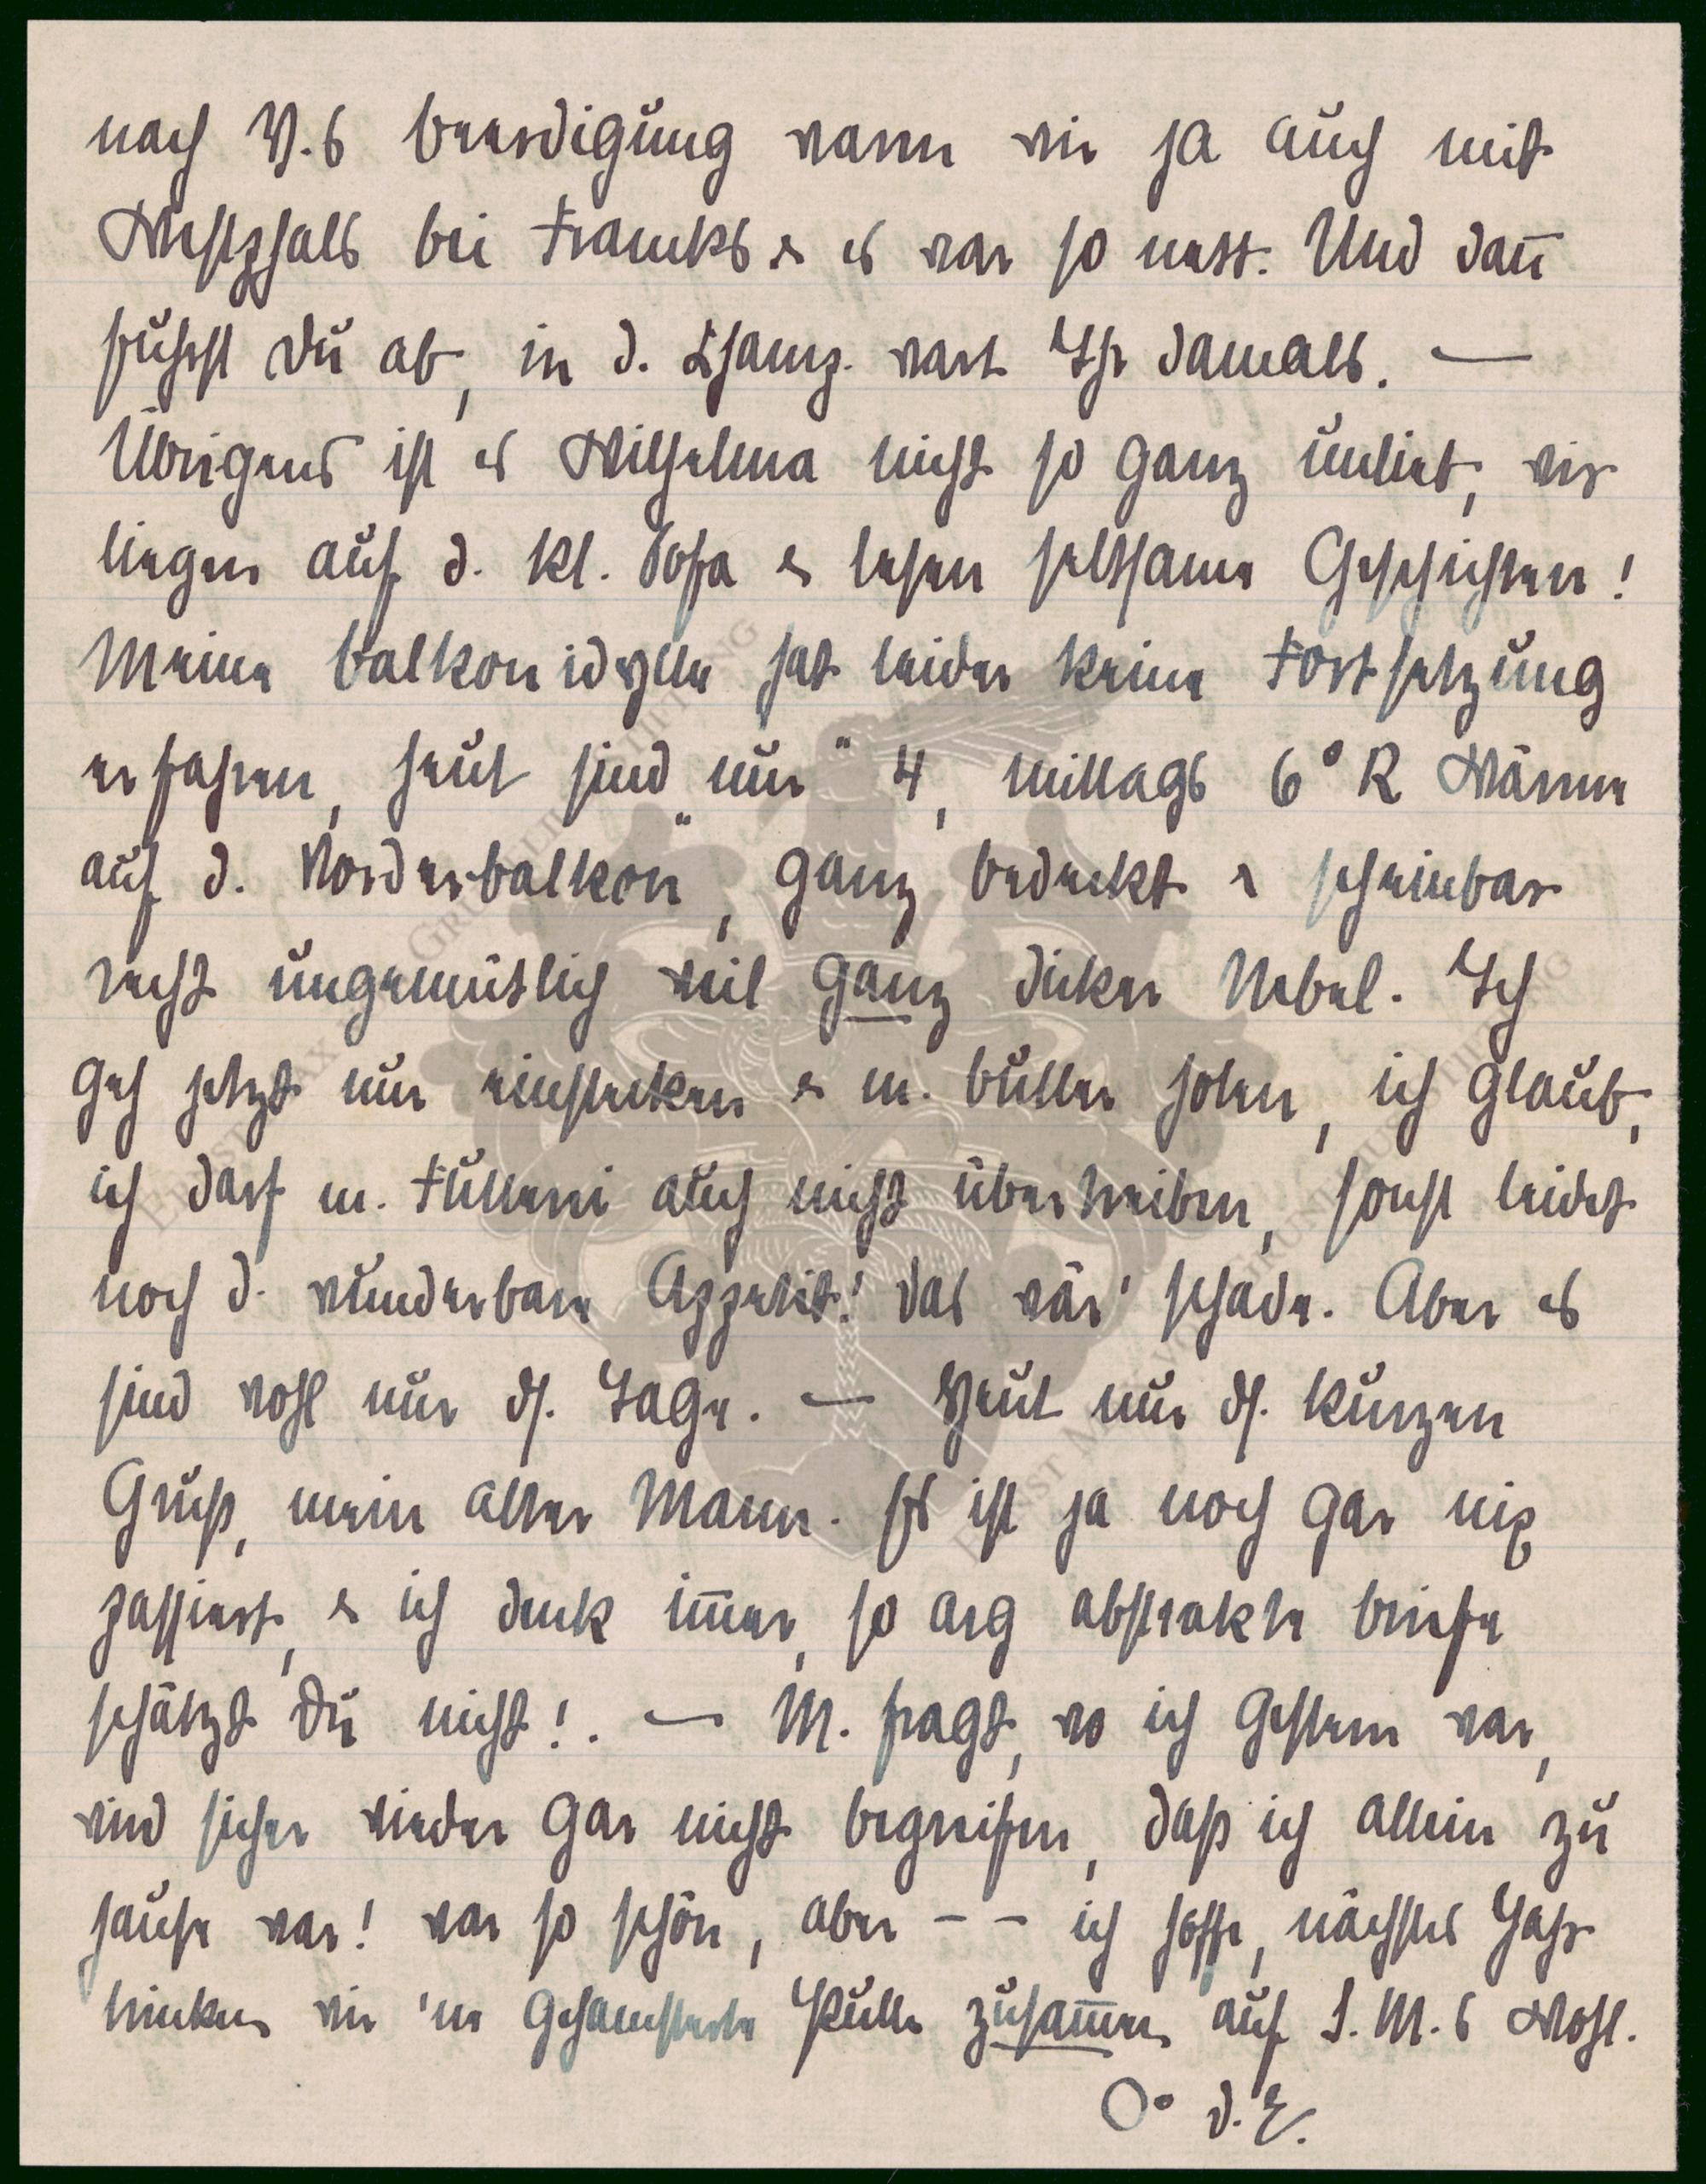 nach V.s Beerdigung waren wir ja auch mit
Westphals bei Francks & es war so nett. Und dañ
fuhrst Du ab, in d. Champ. wart Ihr damals. —
Übrigens ist es Wilhelma nicht so ganz unlieb, wir
liegen auf d. kl. Sofa & lesen seltsame Geschichten!
Meine Balkonidylle hat leider keine Fortsetzung
erfahren, heut sind "nur" 4, mittags 6° R Wärme
auf d. "Vorderbalkon", ganz bedeckt & scheinbar
recht ungemütlich weil ganz dicker Nebel. Ich
geh jetzt nur einstecken & m. Butter holen, ich glaub,
ich darf m. Fütterei auch nicht übertreiben, sonst leidet
noch d. wunderbare Appetit! Das wär' schade. Aber es
sind wohl nur ds. Tage. — Heut nur ds. kurzen
Gruß, mein alter Mann. Es ist ja noch gar nix
passiert, & ich denk im̄er, so arg abstrakte Briefe
schätzt Du nicht!. — M. fragt, wo ich gestern war,
wird sicher wieder gar nicht begreifen, daß ich allein zu
Hause war! War so schön, aber – – ich hoffe, nächstes Jahr
trinken wir 'ne Pulle zusam̄en auf S.M.s Wohl.
O° D.E.